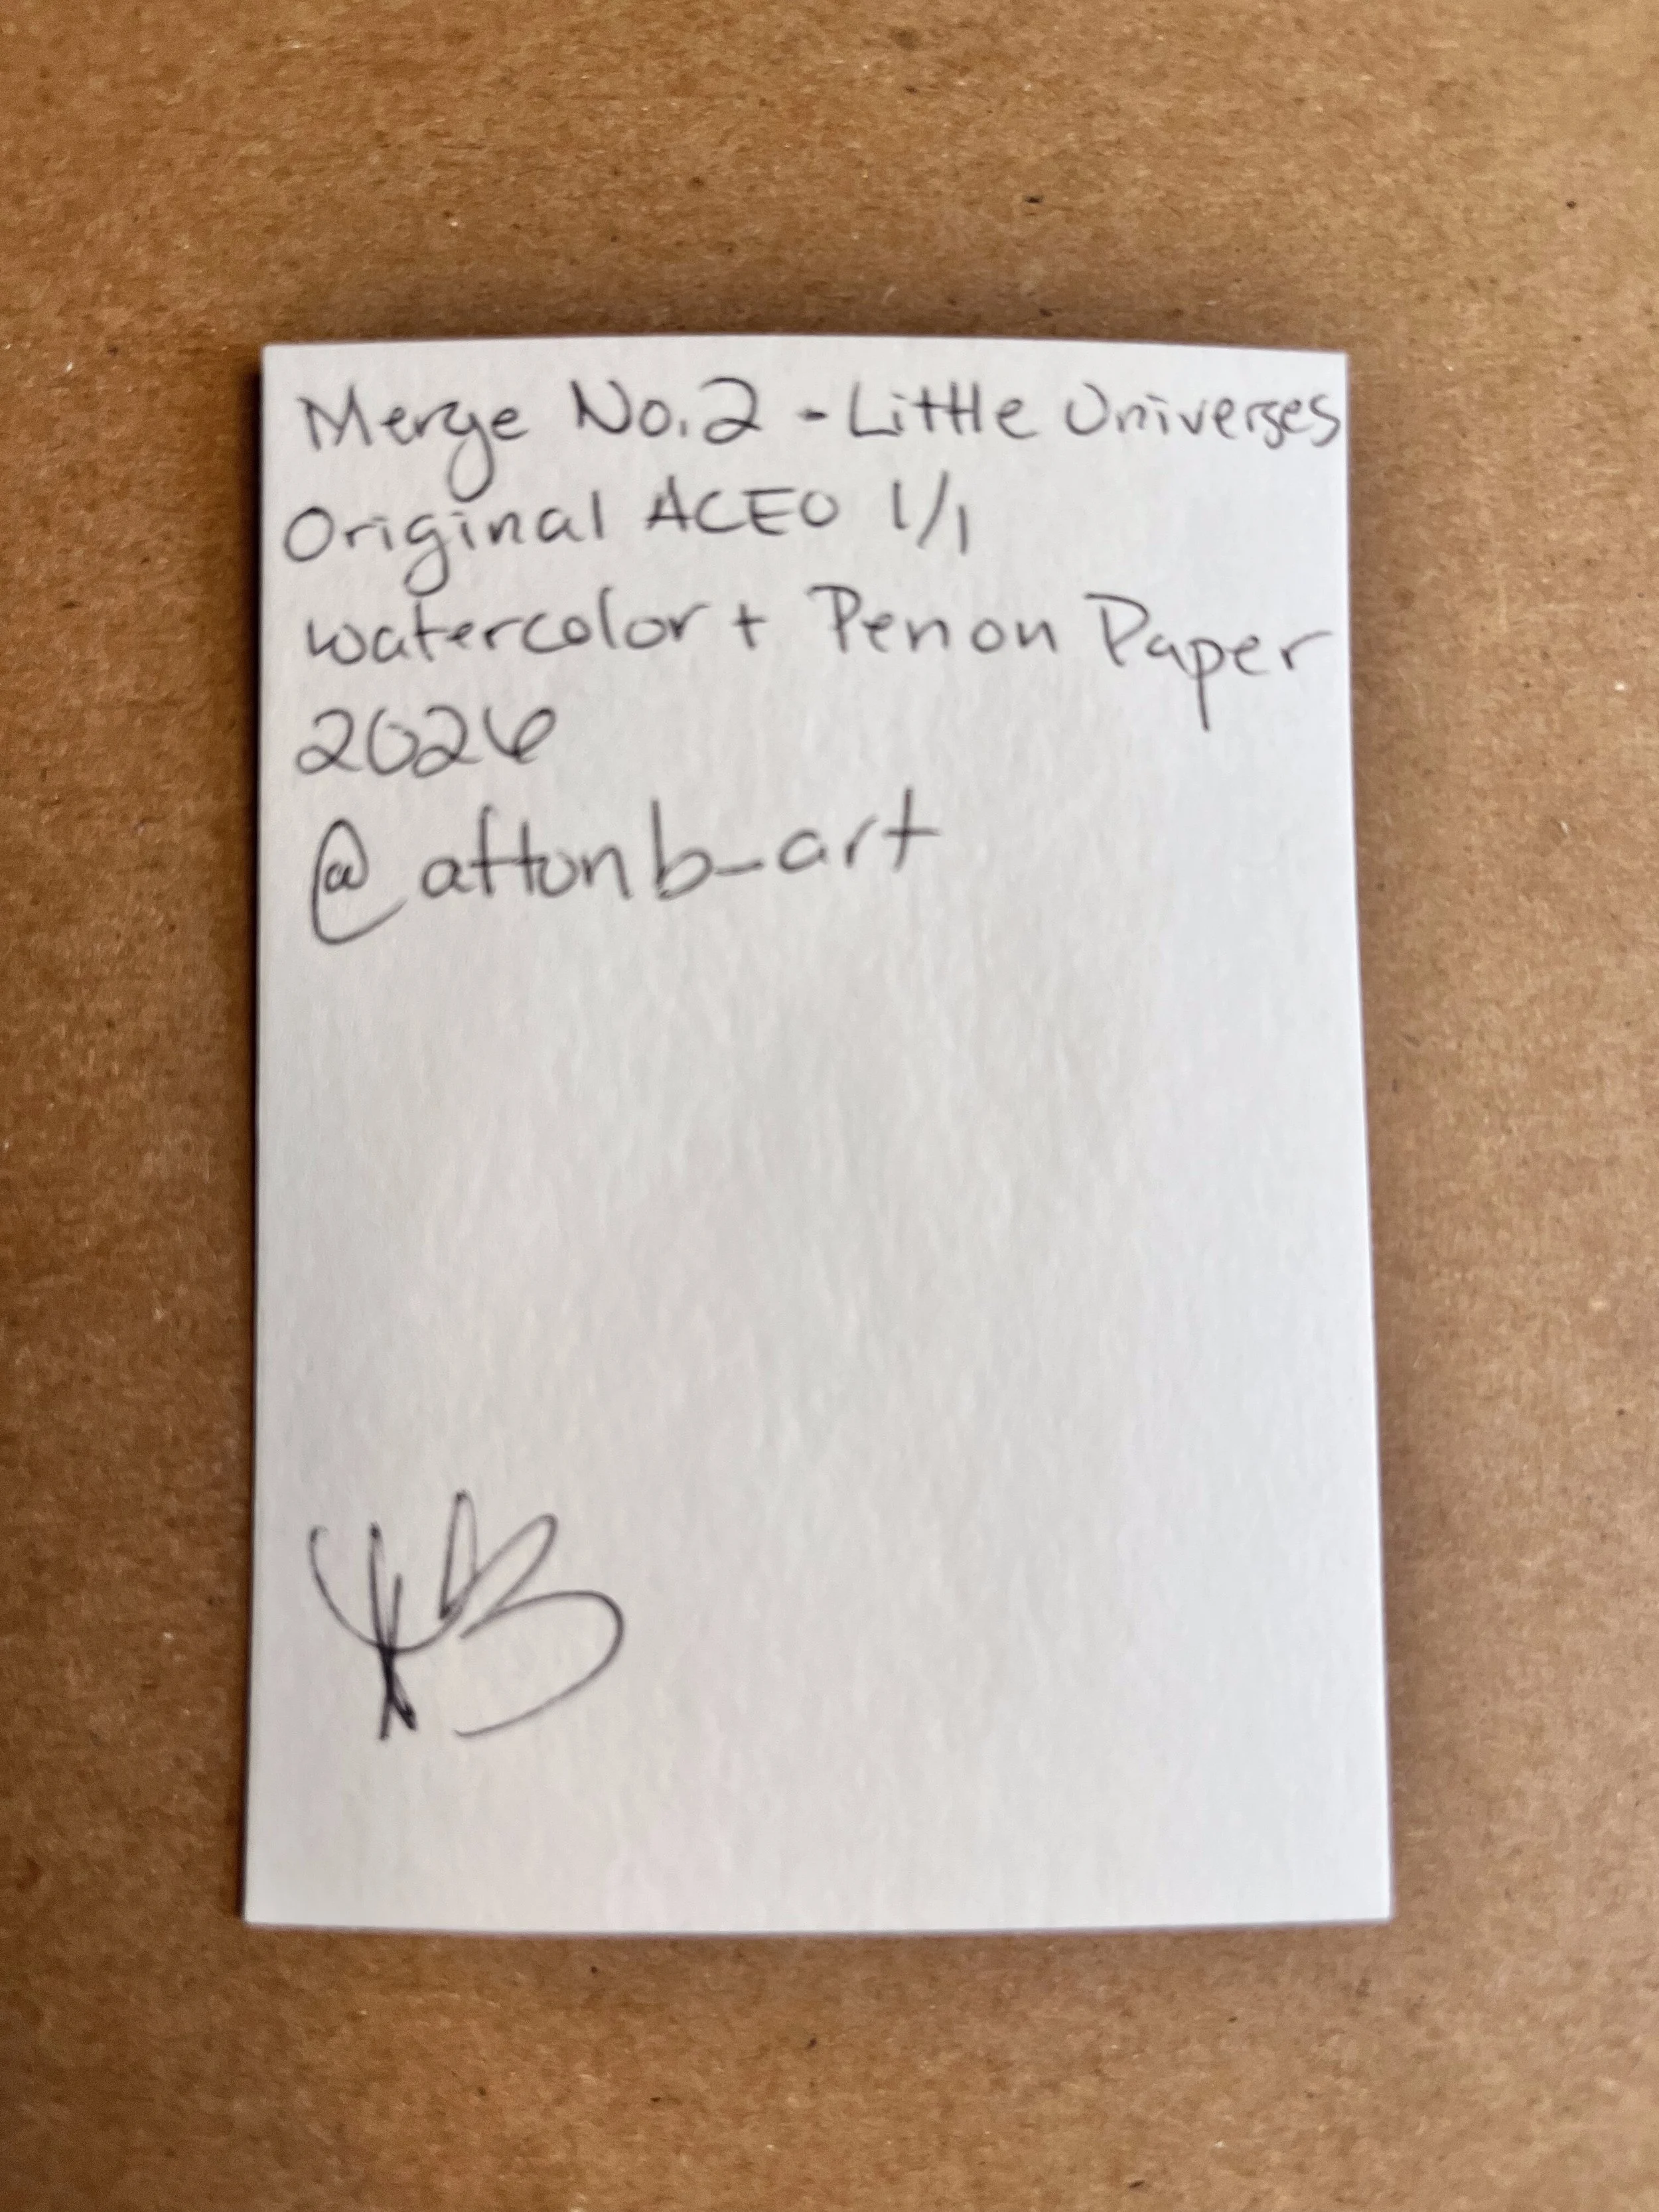 Merge No.2 - Little Universes
Original ACEO 1/1
watercolor + Pen on Paper
2026
@aftonb_art